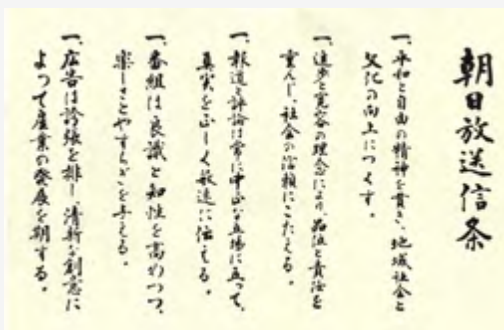 朝日放送信条
一、平和と自由の精神を貫き、地域社会と
文化の向上につくす。
一、進歩と寛容の理念により、品位と責任を
重んじ、社会の信頼にこたえる。
一、報道と評論は常に中正な立場に立って、
真実を正しく敏速に伝える。
一、番組は良識と知性を高めつつ、
楽しさとやすらぎを与える。
一、広告は誇張を排し、清新な創意に
よって産業の発展を期する。